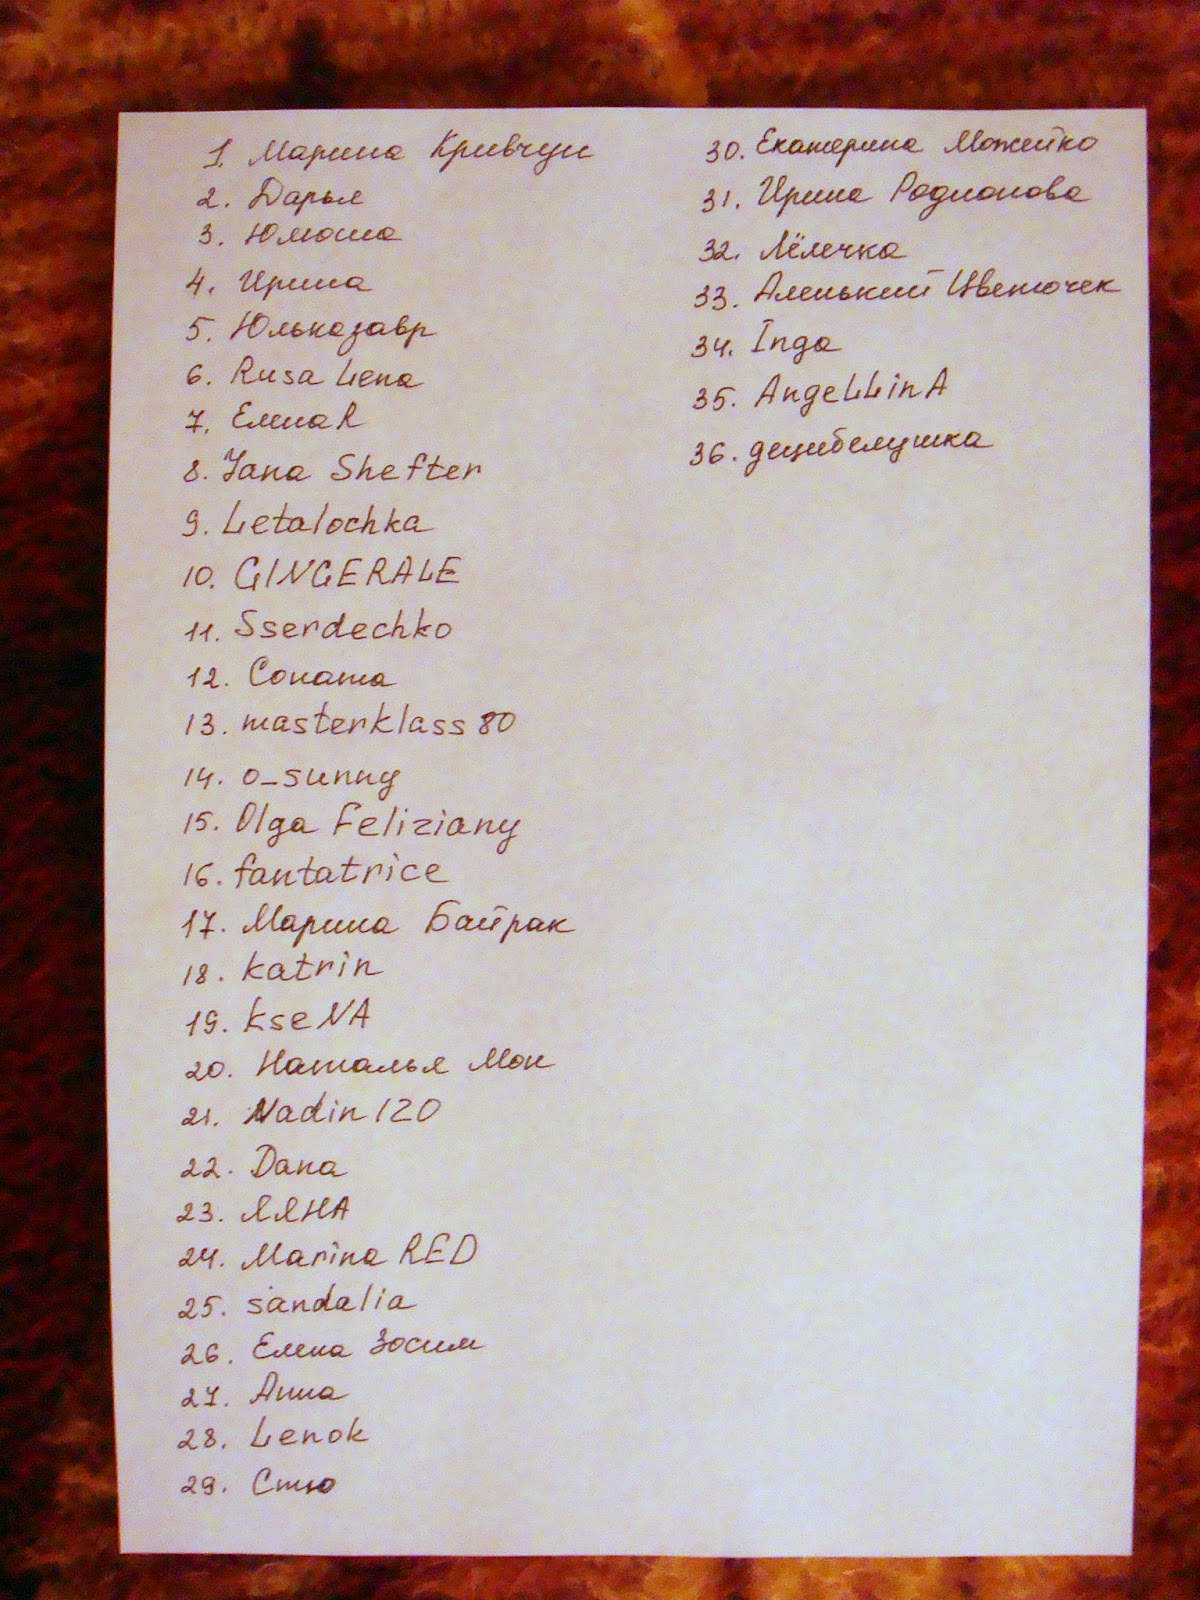 1. Марина Кривчун
2. Дарья
3. Юлюша
4. Ирина
5. Юльказавр
6. Rusa Lena
7. ЕленаR
8. Yana Shefter
9. Letalochka
10. GINGERALE
11. Sserdechko
12. Соната
13. masterklass80
14. o_sunny
15. Olga Feliziany
16. fantatrice
17. Марина Байрак
18. katrin
19. kseNA
20. Наталья Мон
21. Nadin120
22. Dana
23. ЯЯНА
24. Marina RED
25. sandalia
26. Елена Зосим
27. Анна
28. Lenok
29. Стю
30. Екатерина Можейко
31. Ирина Родионова
32. Лёлечка
33. Аленький Цветочек
34. Inga
35. AngeLLinA
36. децибелушка